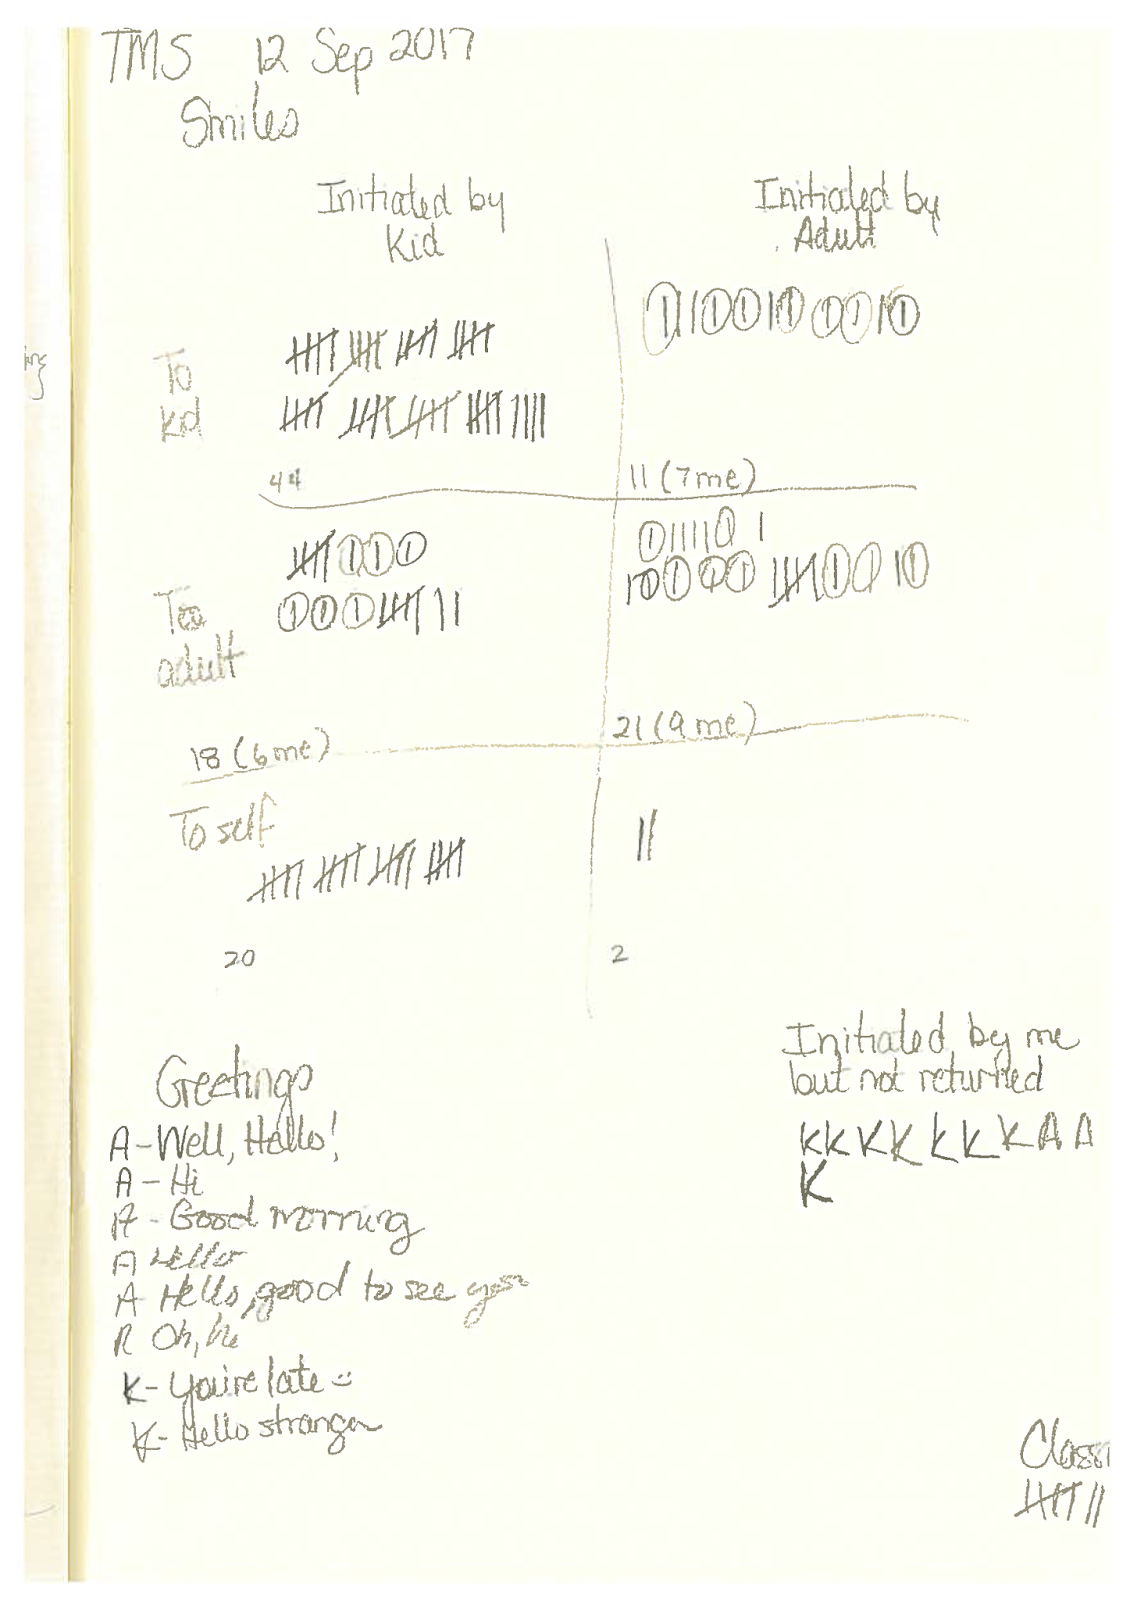 TMS 12 Sep 2017
Smiles
Initiated by Kid
Initiated by Adult
To Kid
44
11 (7 me)
Too adult
18 (6 me)
21 (9 me)
To self
20
2
Greetings
A - Well, Hello!
A - Hi
A - Good morning
A Hello
A Hello, good to see you
Oh, hi
K - You're late
K - Hello stranger
Initiated by me
but not returned
K K K K K K K A A
K
Class